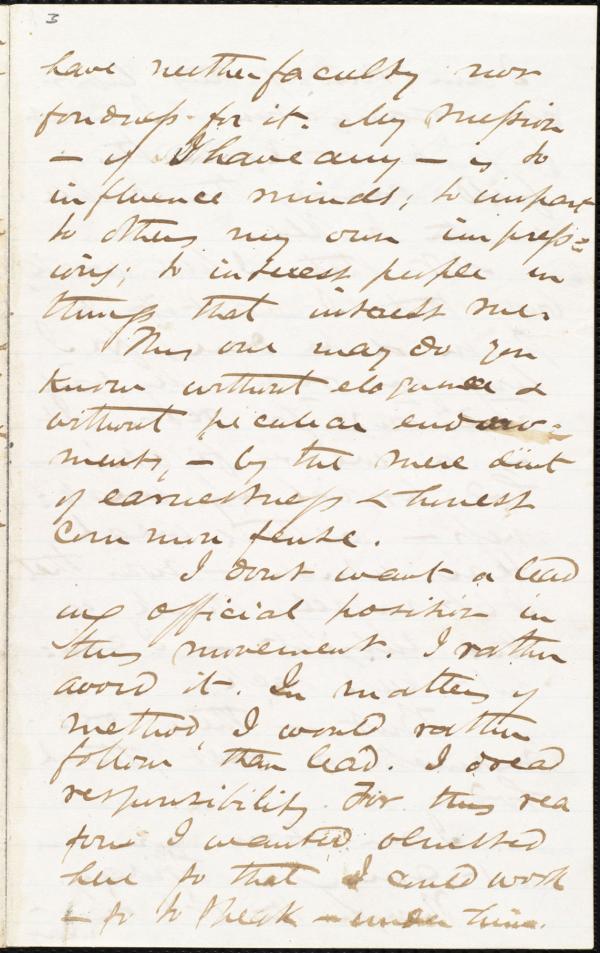 3
have neither faculty nor
fondness for it. My mission
— if I have any — is to
influence minds; to impart
to others my own impress=
ions; to interest people in
things that interest me.
This one may do you
know without eloquence &
without peculiar endow=
ments, — by the mere dint
of earnestness & honest
common sense.
I dont want a lead
ing official position in
this movement. I rather
avoid it. In matters of
method, I would rather
follow than lead. I dread
responsibility. For this rea
son I wanted Olmsted
here so that I could work
— so to speak — under him.